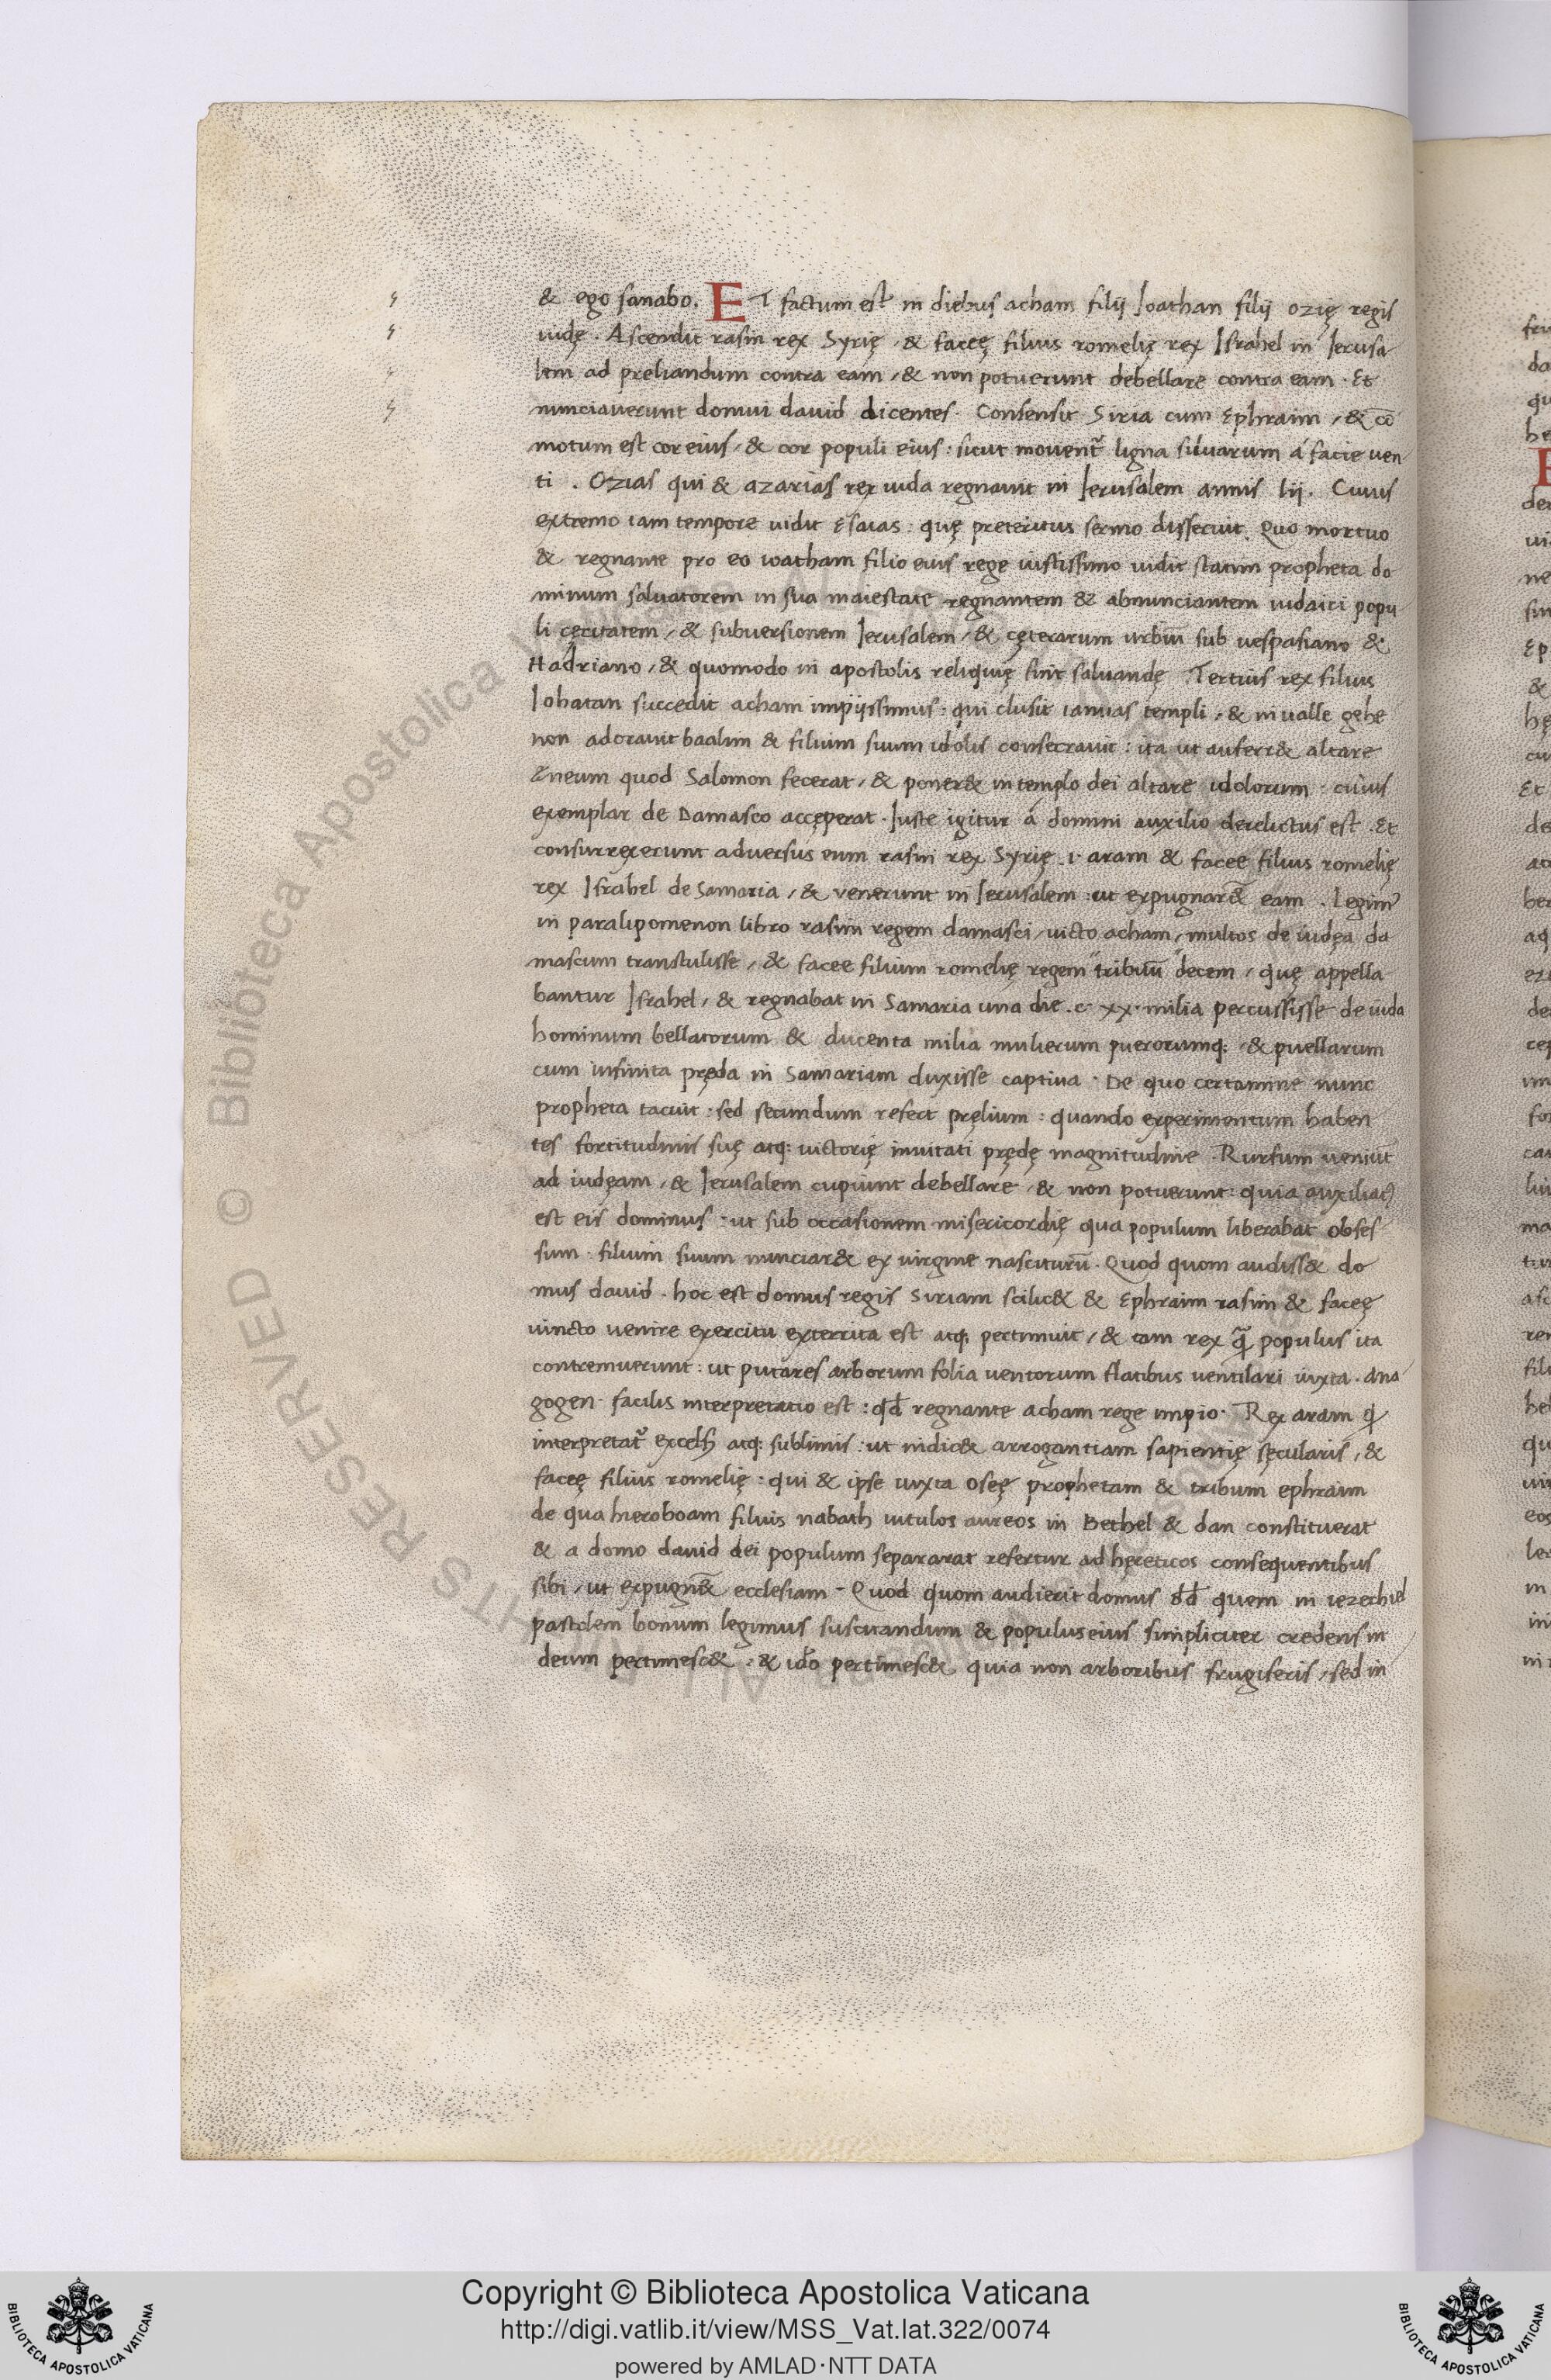 & ego sanabo. ET factum est in diebus acham filij Ioathan filij ozię regis
iudę. Ascendit rasin rex Syrię, & faceę filius romelię rex Israhel in Ierusa
lem ad preliandum contra eam, & non potuerunt debellare contra eam. Et
nunciauerunt domui dauid dicentes. Consensit Siria cum Ephraim, & cō
motum est cor eius, & cor populi eius: sicut mouent᷑ ligna siluarum á facie uen
ti. Ozias qui & azarias rex iuda regnauit in Ierusalem annis lij. Cuius
extremo iam tempore uidit Esaias: quę preteritus sermo disseruit. Quo mortuo
& regnante pro eo ioatham filio eius rege iustissimo uidit statim propheta do
minum saluatorem in sua maiestate regnantem & abnunciantem iudaici popu
li cęcitatem, & subuersionem Ierusalem, & cęterarum urbiū sub uespasiano &
Hadriano, & quomodo in apostolis reliquię sint saluandę Tertius rex filius
Iohatan succedit acham impijssimus: qui clusit ianuas templi, & in ualle gehe
non adorauit baalim & filium suum idolis consecrauit: ita ut auferr& altare
ęneum quod Salomon fecerat, & poner& in templo dei altare idolorum: cuius
exemplar de Damasco accęperat. Iuste igitur á domini auxilio derelictus est. Et
consurrexerunt aduersus eum rasin rex Syrię .i. aram & facee filius romelię
rex Israhel de Samaria, & uenerunt in Ierusalem: ut expugnar&̄ eam. Legim᷒
in paralipomenon libro rasim regem damasci, uicto acham, multos de iudęa da
mascum transtulisse, & facee filium romelię regem tribuū decem, quę appella
bantur Israhel, & regnabat in Samaria una die .c. xx. milia percussisse de iuda
hominum bellatorum & ducenta milia mulierum puerorumq: & puellarum
cum infinita pręda in Samariam duxisse captiua. De quo certamine nunc
propheta tacuit: sed secundum refert pręlium: quando experimentum haben
tes fortitudinis suę atq: uictorię inuitati prędę magnitudine. Rursum ueniūt
ad iudęam, & Ierusalem cupiunt debellare, & non potuerunt: quia auxiliat᷒
est eis dominus: ut sub occasionem misericordię qua populum liberabat obses
sum: filium suum nunciar& ex uirgine nasciturū. Quod quom audiss& do
mus dauid. hoc est domus regis Siriam scilic& & Ephraim rasim & faceę
uincto uenire exercitu exterrita est atq: pertimuit, & tam rex q̄ populus ita
contremuerunt: ut putares arborum folia uentorum flatibus uentilari iuxta. ana
gogen. facilis interpretatio est: qd̄ regnante acham rege impio. Rex aram q
interpretat᷑ excels atq: sublimis: ut indic& arrogantiam sapientię sęcularis, &
faceę filius romelię: qui & ipse iuxta oseę prophetam & tribum ephraim
de qua hieroboam filius nabath uitulos aureos in Bethel & dan constituerat
& a domo dauid dei populum separarat refertur ad hęreticos consequentibus
sibi, ut expugn&̄ ecclesiam - Quod quom audierit domus dd̄ quem in iezechiel
pastolem bonum legimus suscitandum & populus eius simpliciter credens in
deum pertimesc&, & ido pertimesc& quia non arboribus frugiferis, sed in
Copyright © Biblioteca Apostolica Vaticana
http://digi.vatlib.it/view/MSS_Vat.lat.322/0074
powered by AMLAD·NTT DATA